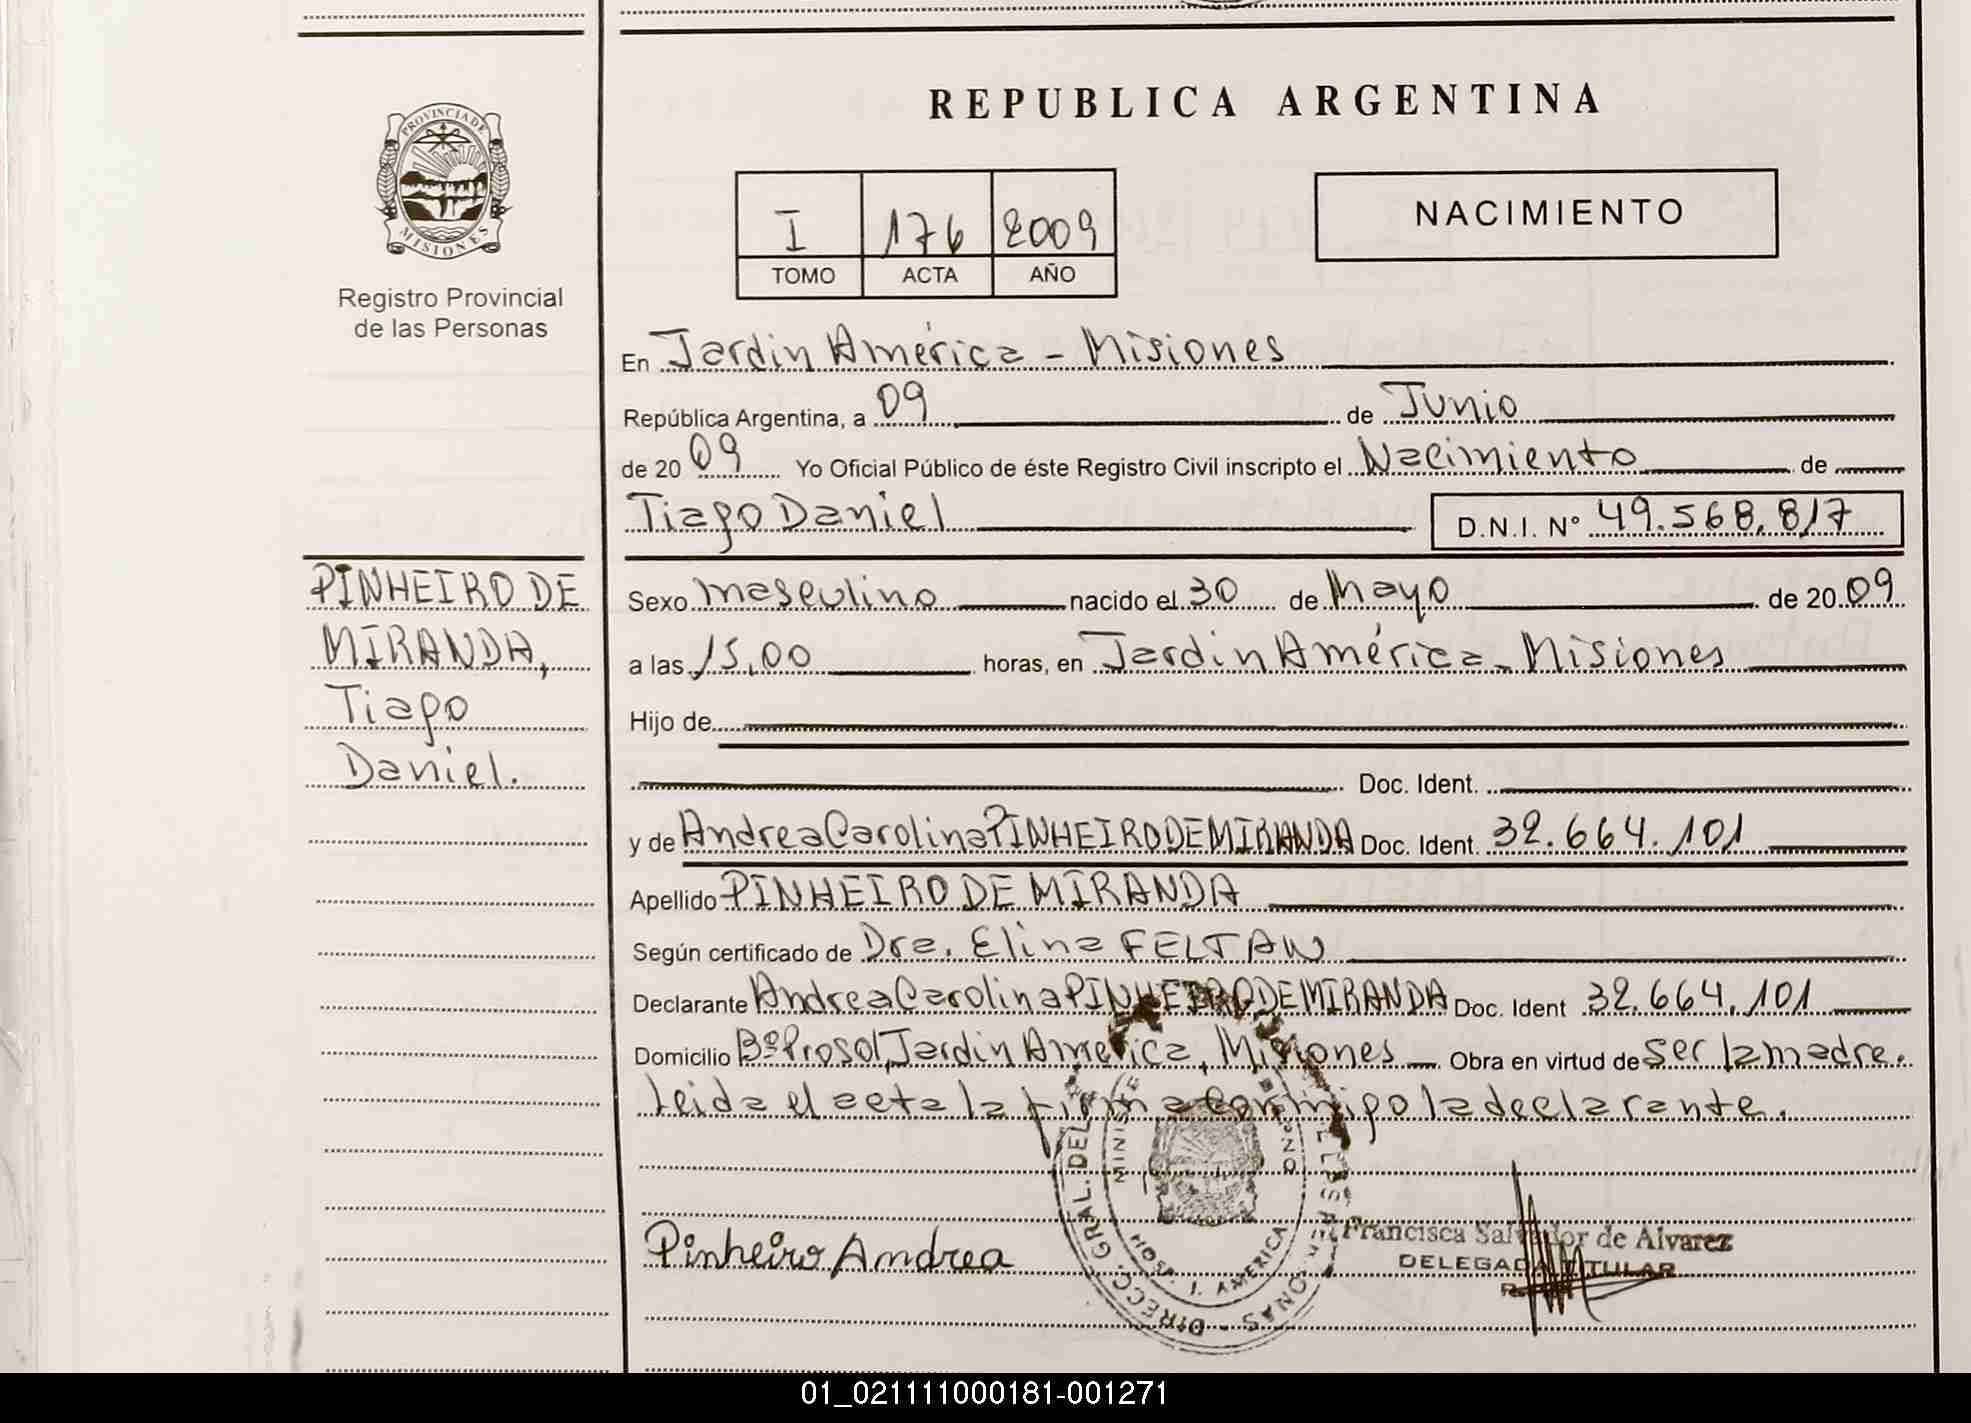 PROVINCIA DE
MISIONES
Registro Provincial
de las Personas
PINHEIRO DE
MIRANDA,
Tiago
Daniel.
REPUBLICA ARGENTINA
I 176 2009
TOMO ACTA AÑO
NACIMIENTO
En Jardin América - Misiones
República Argentina, a 09 de Junio
de 20 09 Yo Oficial Público de éste Registro Civil inscripto el Nacimiento de
Tiago Daniel D.N.I. Nº 49.568.817
Sexo masculino nacido el 30 de Mayo de 20 09
a las 15,00 horas, en Jardin América - Misiones
Hijo de
Doc. Ident.
y de Andrea Carolina PINHEIRO DE MIRANDA Doc. Ident. 32.664.101
Apellido PINHEIRO DE MIRANDA
Según certificado de Dra. Elina FELTAN
Declarante Andrea Carolina PINHEIRO DE MIRANDA Doc. Ident 32.664.101
Domicilio Bº Prosol, Jardin America, Misiones Obra en virtud de ser la madre.
Leida el acta la firma conmigo la declarante.
DIRECC. GRAL. DEL
HOSP. J. AMERICA
Pinheiro Andrea
Francisca Salvador de Alvarez
DELEGADA TITULAR
01_021111000181-001271